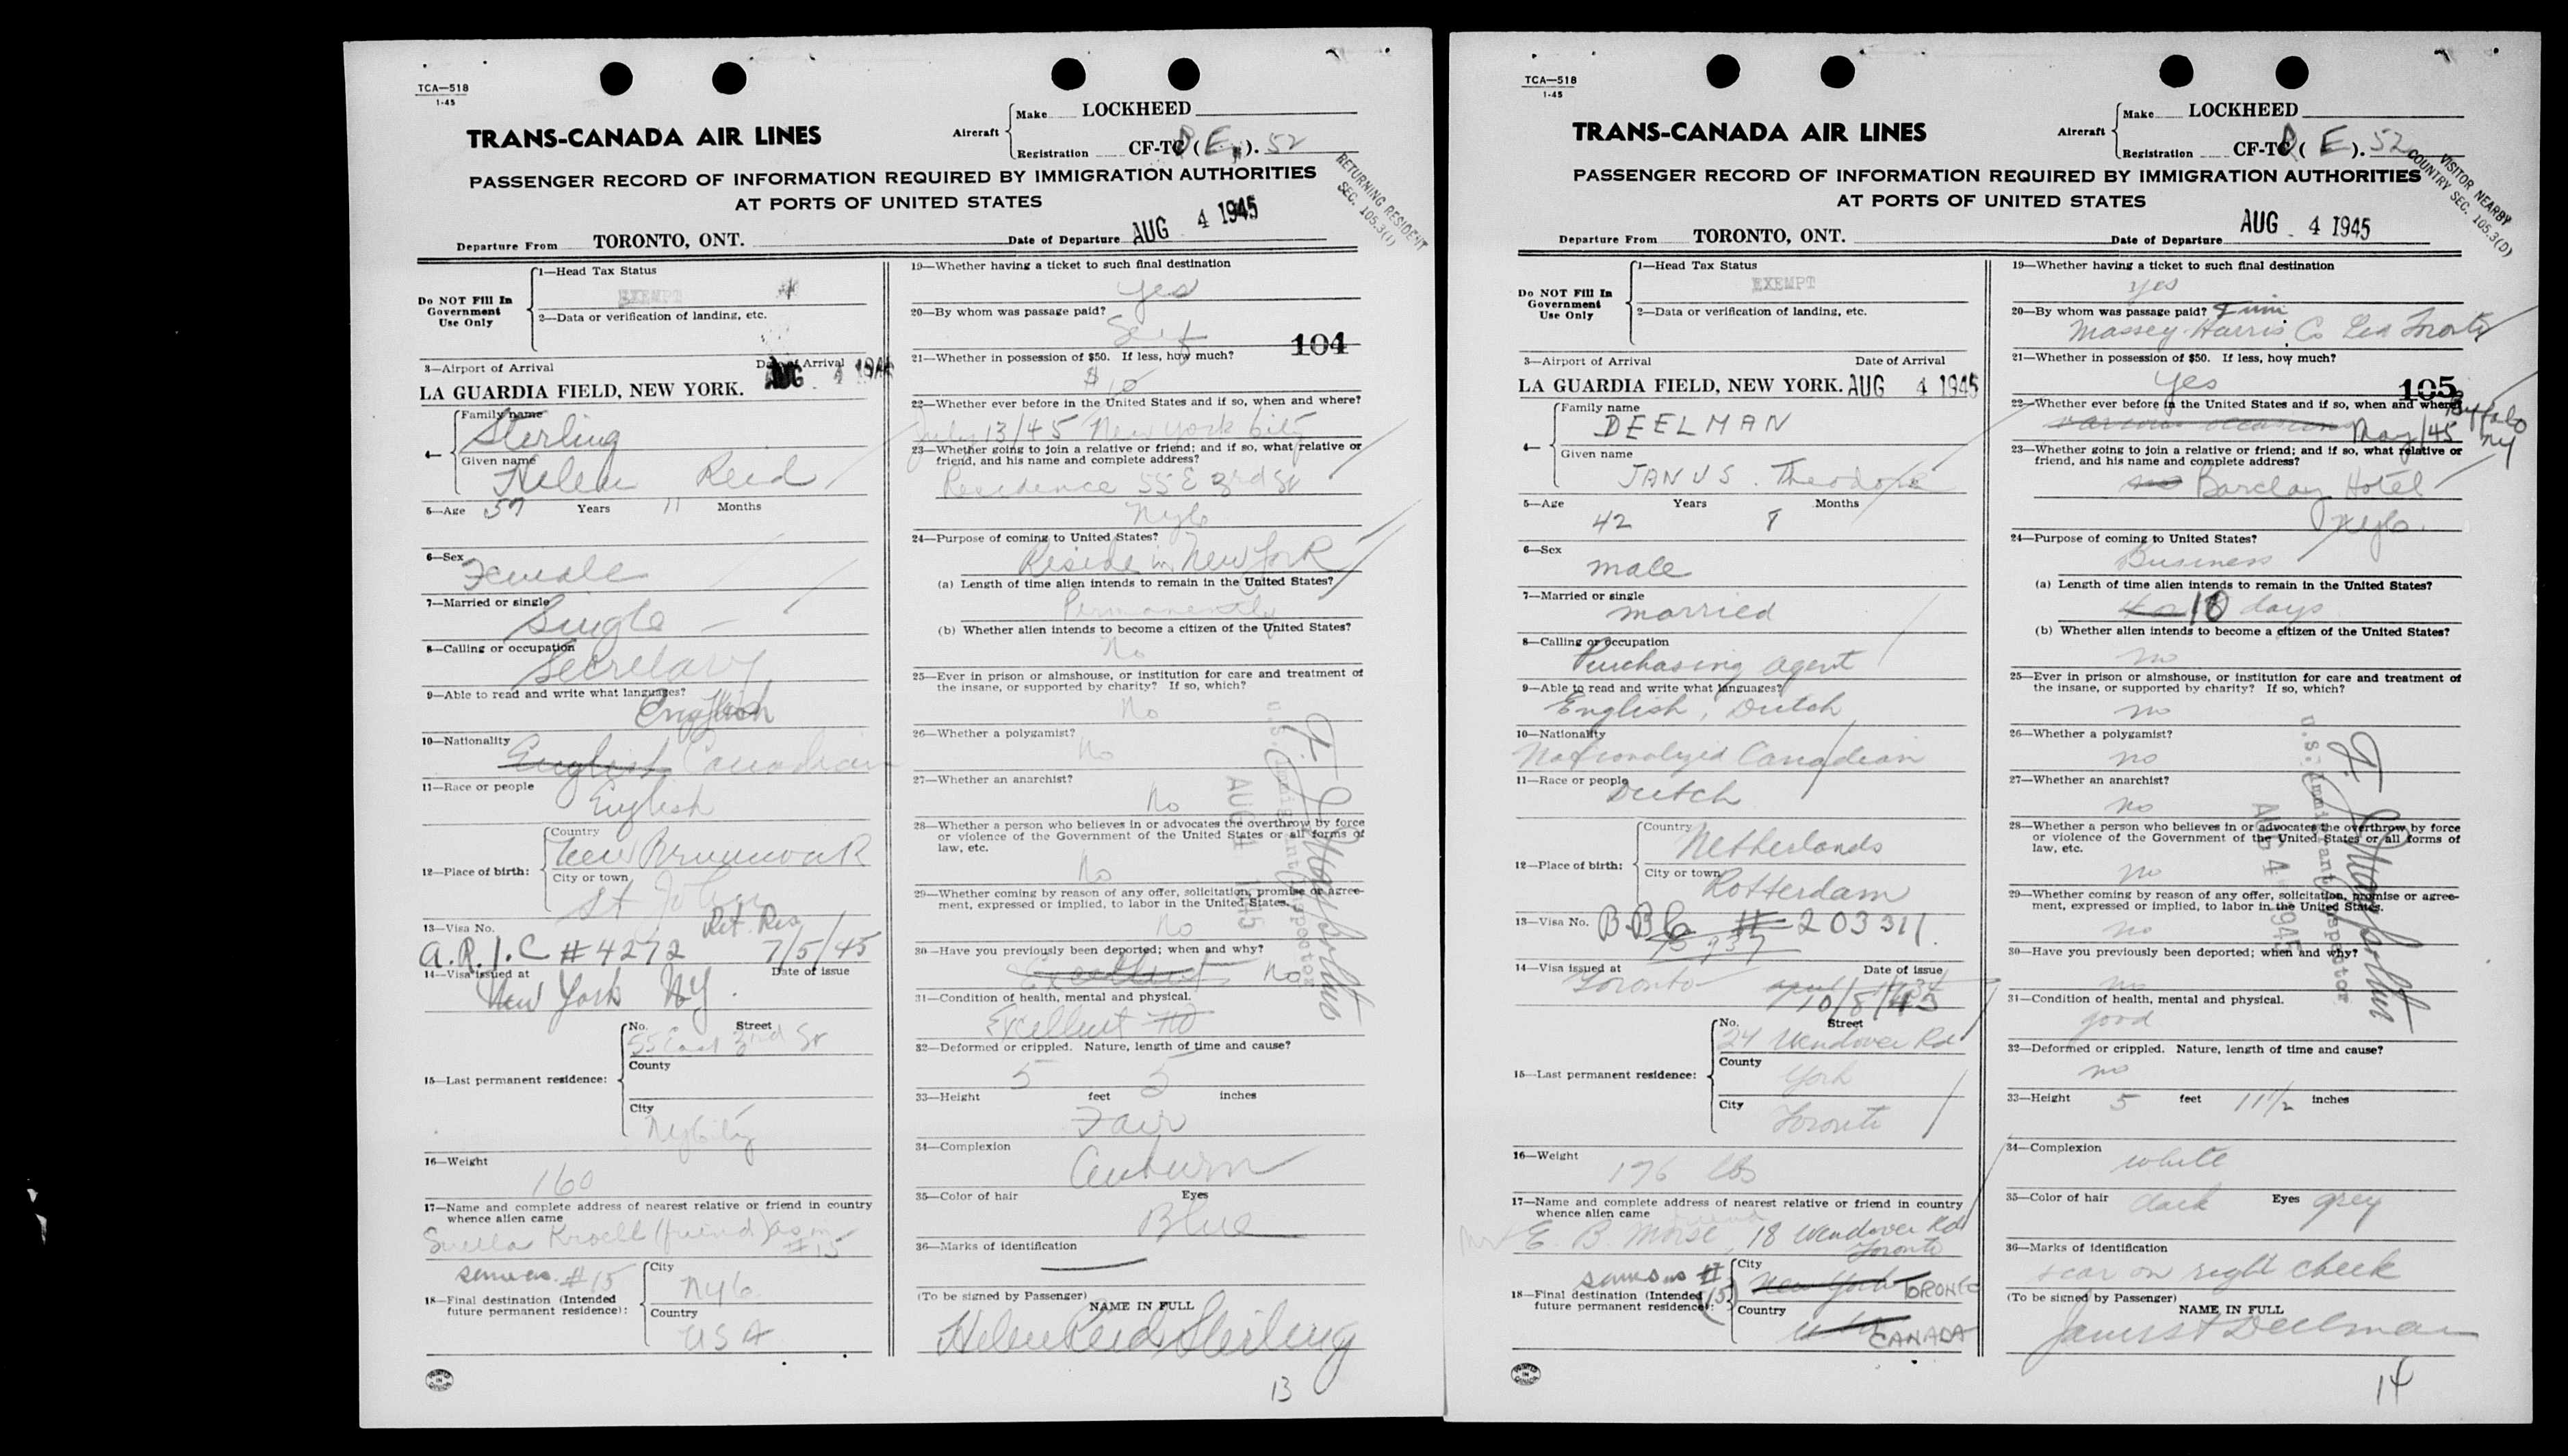 TCA—518
1-45
TRANS-CANADA AIR LINES
Aircraft
Make LOCKHEED
Registration CF-TC ( E ). 52
PASSENGER RECORD OF INFORMATION REQUIRED BY IMMIGRATION AUTHORITIES
AT PORTS OF UNITED STATES
RETURNING RESIDENT
SEC. 105.3(1)
Departure From TORONTO, ONT.
Date of Departure AUG 4 1945
Do NOT Fill In
Government
Use Only
1—Head Tax Status
EXEMPT
2—Data or verification of landing, etc.
3—Airport of Arrival
Date of Arrival
LA GUARDIA FIELD, NEW YORK. AUG 4 194
4—
Family name
Sterling
Given name
Helen Reid
5—Age 57 Years 11 Months
6—Sex
Female
7—Married or single
Single
8—Calling or occupation
Secretary
9—Able to read and write what languages?
English
10—Nationality
English Canadian
11—Race or people
English
12—Place of birth:
Country
New Brunswick
City or town
St John
13—Visa No. Ret. Res
A.R.I.C # 4272 7/5/45
14—Visa issued at
Date of issue
New York NY.
15—Last permanent residence:
No. Street
55 East 3rd St
County
City
NyCity
16—Weight
160
17—Name and complete address of nearest relative or friend in country
whence alien came
Kroell (friend) as in
#15
same as #15
18—Final destination (Intended
future permanent residence):
City
NyC
Country
USA
19—Whether having a ticket to such final destination
yes
20—By whom was passage paid?
Self
104
21—Whether in possession of $50. If less, how much?
$10
22—Whether ever before in the United States and if so, when and where?
July 13/45 New York City
23—Whether going to join a relative or friend; and if so, what relative or
friend, and his name and complete address?
Residence 55 E 3rd St
NyC
24—Purpose of coming to United States?
Reside in New York
(a) Length of time alien intends to remain in the United States?
Permanently
(b) Whether alien intends to become a citizen of the United States?
No
25—Ever in prison or almshouse, or institution for care and treatment of
the insane, or supported by charity? If so, which?
No
26—Whether a polygamist?
No
27—Whether an anarchist?
No
28—Whether a person who believes in or advocates the overthrow by force
or violence of the Government of the United States or all forms of
law, etc.
No
29—Whether coming by reason of any offer, solicitation, promise or agree-
ment, expressed or implied, to labor in the United States.
No
30—Have you previously been deported; when and why?
Excellent No
31—Condition of health, mental and physical.
Excellent no
32—Deformed or crippled. Nature, length of time and cause?
5 5
33—Height feet inches
Fair
34—Complexion
Auburn
35—Color of hair Eyes
Blue
36—Marks of identification
(To be signed by Passenger)
NAME IN FULL
Helen Reid Sterling
13
U.S. Immigrant Inspector
AUG 4 1945
PRINTED IN CANADA
TCA—518
1-45
TRANS-CANADA AIR LINES
Aircraft
Make LOCKHEED
Registration CF-TC ( E ). 52
PASSENGER RECORD OF INFORMATION REQUIRED BY IMMIGRATION AUTHORITIES
AT PORTS OF UNITED STATES
VISITOR NEARBY
COUNTRY SEC. 105.3(D)
Departure From TORONTO, ONT.
Date of Departure AUG 4 1945
Do NOT Fill In
Government
Use Only
1—Head Tax Status
EXEMPT
2—Data or verification of landing, etc.
3—Airport of Arrival
Date of Arrival
LA GUARDIA FIELD, NEW YORK. AUG 4 1945
4—
Family name
DEELMAN
Given name
JANUS. Theodore
5—Age 42 Years 8 Months
6—Sex
male
7—Married or single
married
8—Calling or occupation
Purchasing agent
9—Able to read and write what languages?
English, Dutch
10—Nationality
Nationalized Canadian
11—Race or people
Dutch
12—Place of birth:
Country
Netherlands
City or town
Rotterdam
13—Visa No. B.B.C. # 203311.
14—Visa issued at
Date of issue
Toronto 10/8/43
15—Last permanent residence:
No. Street
24 Wendover Rd
County
York
City
Toronto
16—Weight
176 lbs
17—Name and complete address of nearest relative or friend in country
whence alien came friend
Mr E. B. Morse, 18 Wendover Rd
Toronto
same as #
(15)
18—Final destination (Intended
future permanent residence):
City
New York TORONTO
Country
USA CANADA
19—Whether having a ticket to such final destination
yes
20—By whom was passage paid? Firm
Massey-Harris Co Ltd Toronto
21—Whether in possession of $50. If less, how much?
yes
105
22—Whether ever before in the United States and if so, when and where?
various occasions May/45 Buffalo
NY
23—Whether going to join a relative or friend; and if so, what relative or
friend, and his name and complete address?
no Barclay Hotel
NyC.
24—Purpose of coming to United States?
Business
(a) Length of time alien intends to remain in the United States?
10 days
(b) Whether alien intends to become a citizen of the United States?
no
25—Ever in prison or almshouse, or institution for care and treatment of
the insane, or supported by charity? If so, which?
no
26—Whether a polygamist?
no
27—Whether an anarchist?
no
28—Whether a person who believes in or advocates the overthrow by force
or violence of the Government of the United States or all forms of
law, etc.
no
29—Whether coming by reason of any offer, solicitation, promise or agree-
ment, expressed or implied, to labor in the United States.
no
30—Have you previously been deported; when and why?
no
31—Condition of health, mental and physical.
good
32—Deformed or crippled. Nature, length of time and cause?
no
33—Height 5 feet 11 1/2 inches
34—Complexion
white
35—Color of hair dark Eyes grey
36—Marks of identification
scar on right cheek
(To be signed by Passenger)
NAME IN FULL
Janus T Deelman
14
U.S. Immigrant Inspector
AUG 4 1945
PRINTED IN CANADA